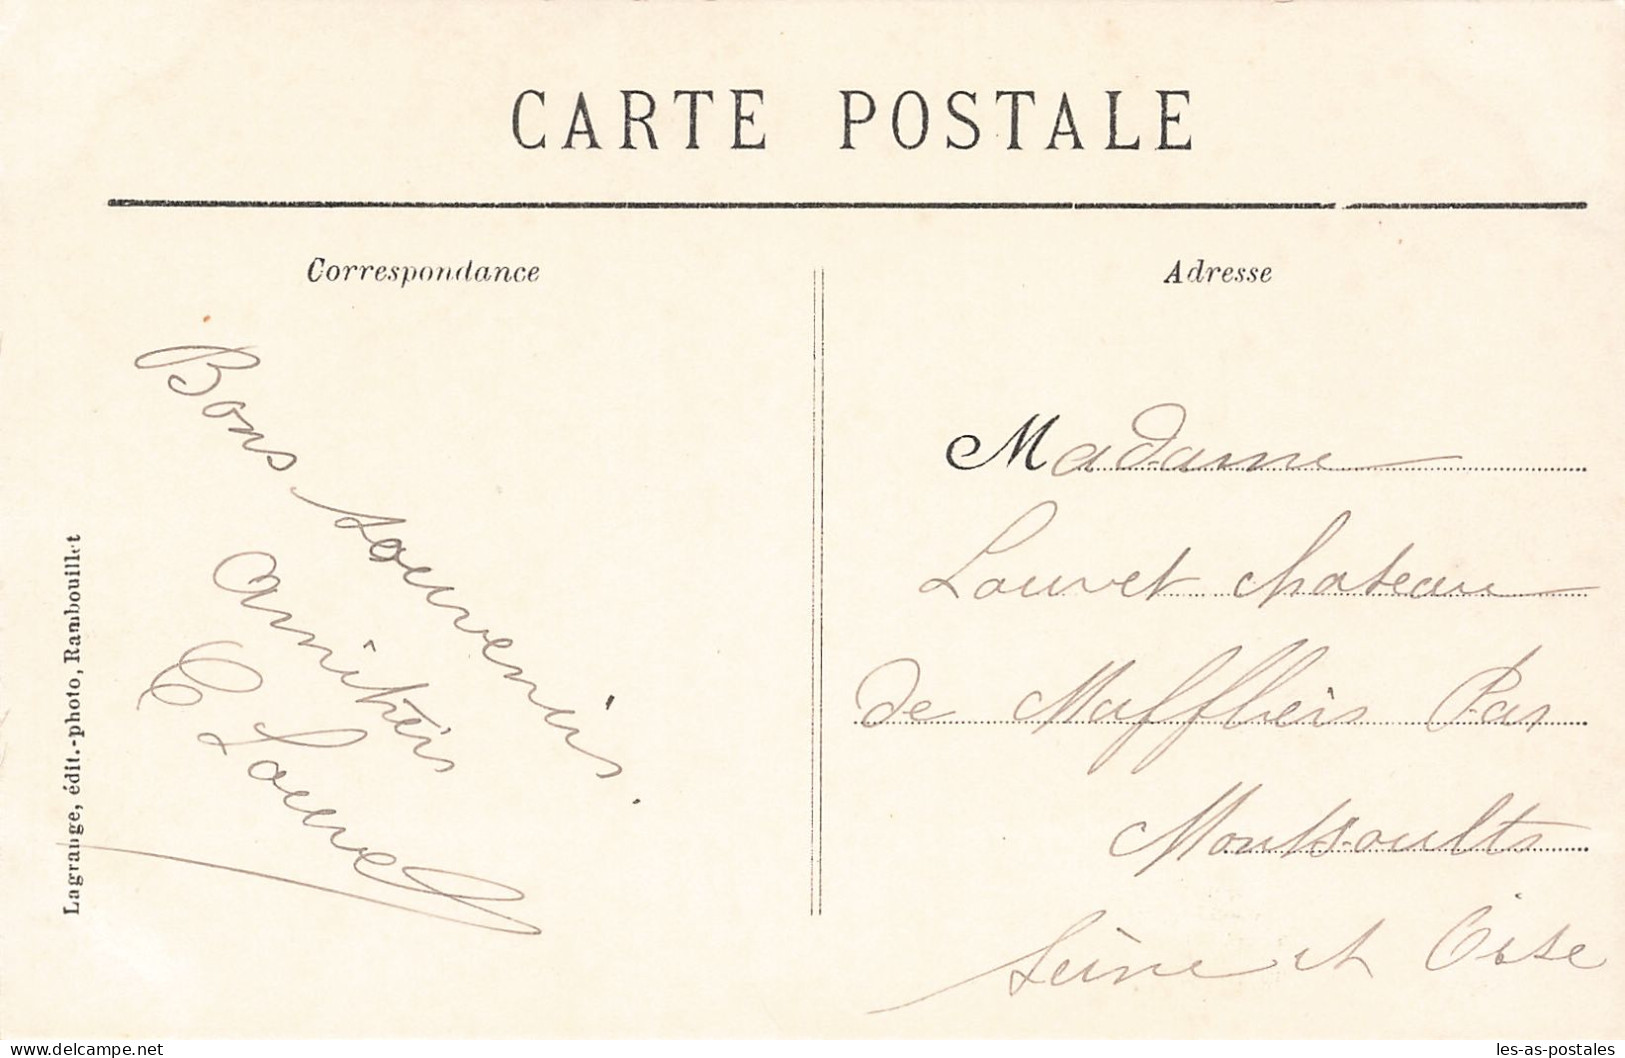 CARTE POSTALE
Correspondance
Bons souvenirs.
Amitiés
C Louvet
Lagrange, édit.-photo, Rambouillet
Adresse
Madame
Louvet chateau
de Maffleirs Par
Montsoults
Seine et Oise
delcampe.net
les-as-postales